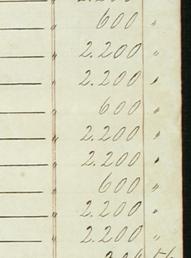 2.200
600 "
" 2.200 "
" 2.200 "
" 600 "
" 2.200 "
" 2.200 "
" 600 "
" 2.200 "
" 2.200 "